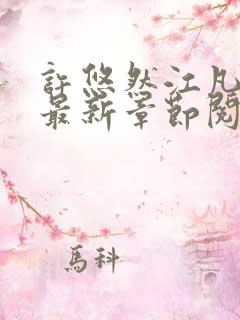 許悠然江凡
最新章節閱
馬科